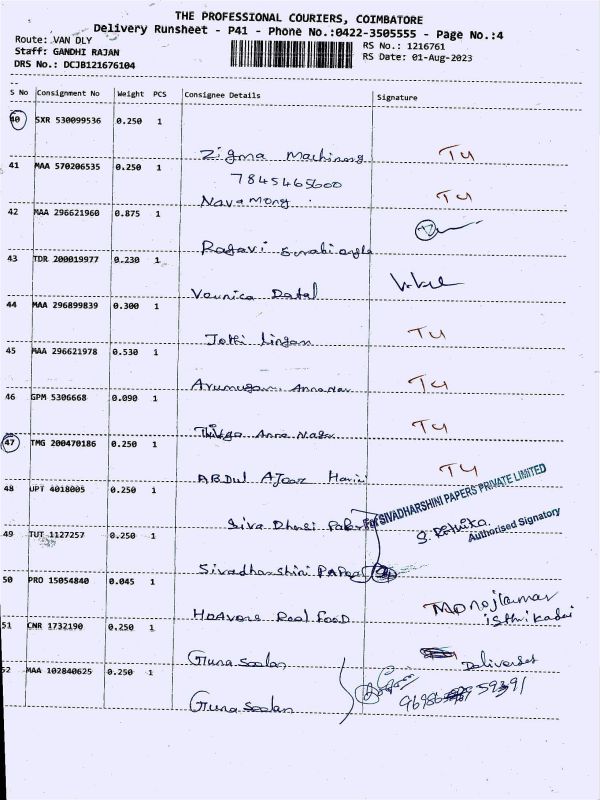 THE PROFESSIONAL COURIERS, COIMBATORE
Delivery Runsheet - P41 - Phone No.:0422-3505555 - Page No.:4
Route: VAN DLY
RS No.: 1216761
Staff: GANDHI RAJAN
RS Date: 01-Aug-2023
DRS No.: DCJB121676104
S No Consignment No Weight PCS Consignee Details Signature
40 SXR 530099536 0.250 1
Zigma TU
41 MAA 570206535 0.250 1
7845465600
TU
42 MAA 296621960 0.875 1
Ragavi
43 TDR 200019977 0.230 1
44 MAA 296899839 0.300 1
Jothi Lingam TU
45 MAA 296621978 0.530 1
Arumugam TU
46 GPM 5306668 0.090 1
Anna Nagar TU
47 TMG 200470186 0.250 1
ABDul TU
48 UPT 4018005 0.250 1
For SIVADHARSHINI PAPERS PRIVATE LIMITED
Siva
Authorised Signatory
49 TUT 1127257 0.250 1
Sivadharshini PAPER
50 PRO 15054840 0.045 1
Real FooD Manojkumar
51 CNR 1732190 0.250 1
Guna Seelan
52 MAA 102840625 0.250 1
Guna Seelan